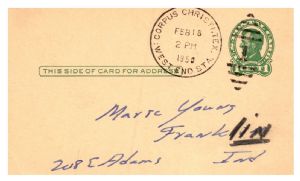 CORPUS CHRISTI, TEX.
FEB 18
2 PM
1950
WEST END STA.
THIS SIDE OF CARD FOR ADDRESS
1
Marse Young
Franklin
208 E Adams Ind